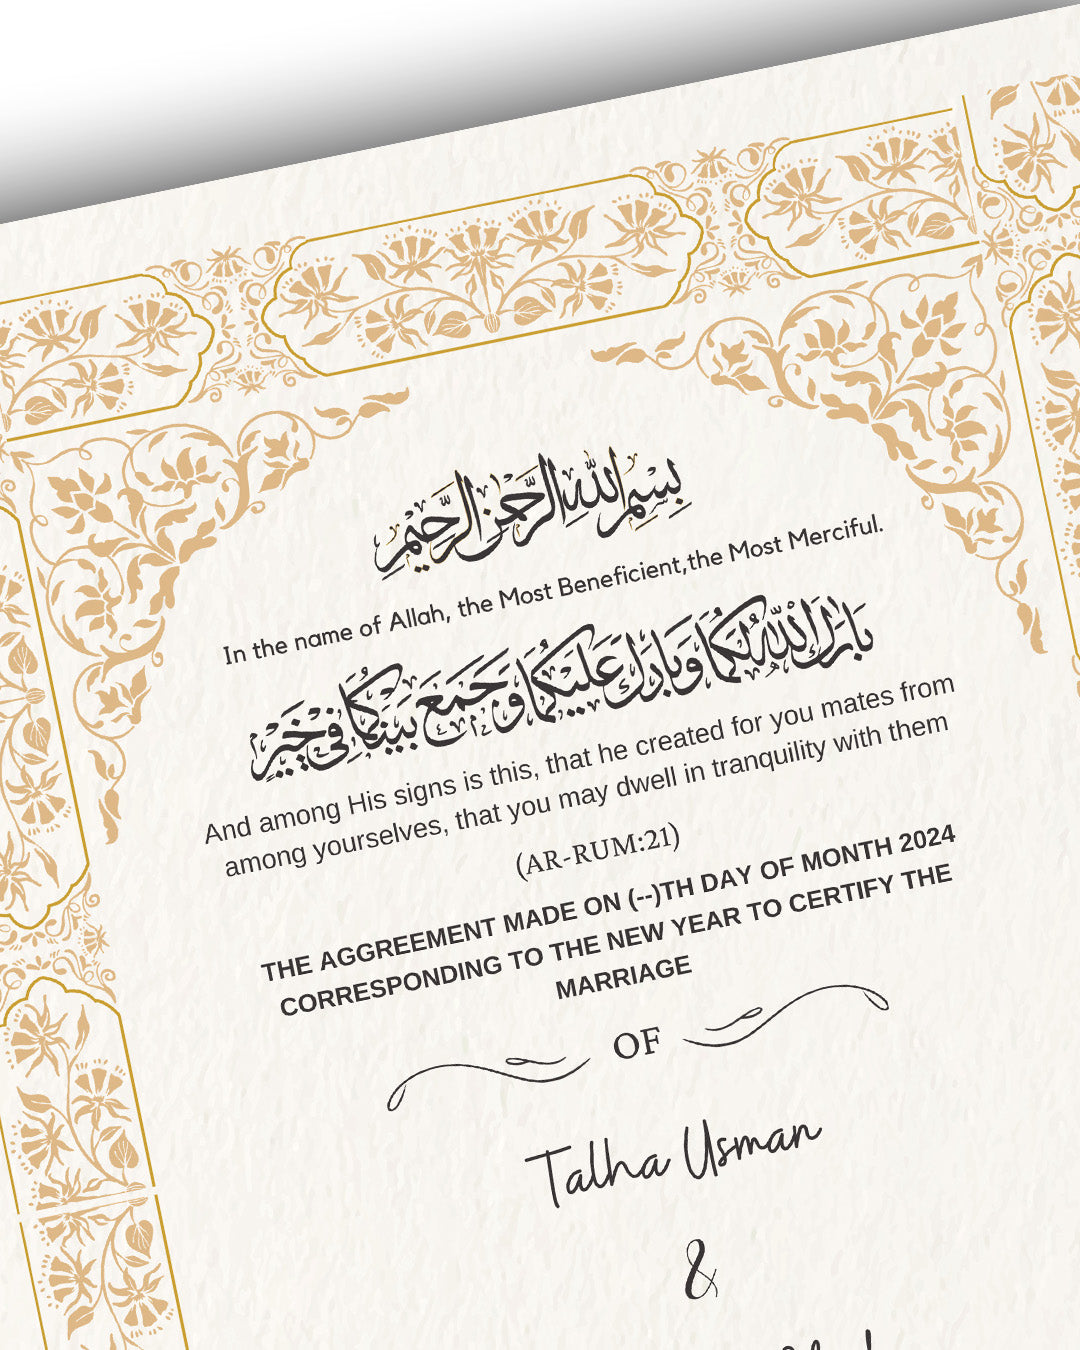 بِسْمِ اللهِ الرَّحْمٰنِ الرَّحِيْمِ
In the name of Allah, the Most Beneficient,the Most Merciful.
بَارَكَ اللهُ لَكُمَا وَبَارَكَ عَلَيْكُمَا وَجَمَعَ بَيْنَكُمَا فِي خَيْرٍ
And among His signs is this, that he created for you mates from
among yourselves, that you may dwell in tranquility with them
(AR-RUM:21)
THE AGGREEMENT MADE ON (--)TH DAY OF MONTH 2024
CORRESPONDING TO THE NEW YEAR TO CERTIFY THE
MARRIAGE
OF
Talha Usman
&